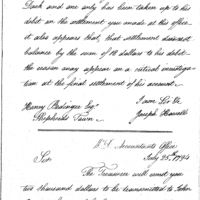 Dark and one only has been taken up to his
debit in the settlement you made at this office
it also appears that, that settlement does not
balance by the sum of 18 dollars to his debit
the reason may appear on a critical investiga
tion at the final settlement of his account.
I am Sir &c
Henry Bedinger Esq.
Joseph Howell
Shepherds Town
W.D. Accountants Office
July 25th 1794
Sir
The Treasurer will remit you
two thousand dollars to be transmitted to John